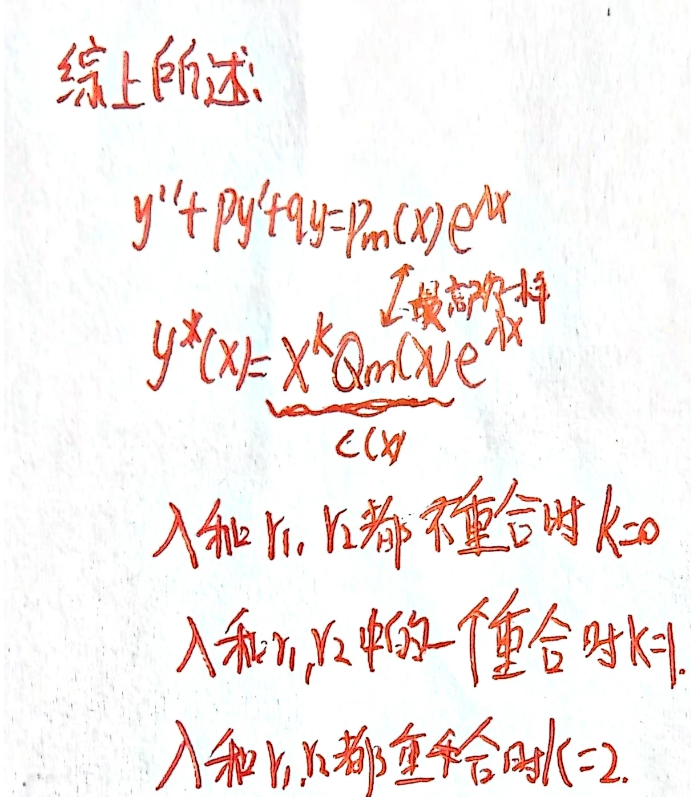 综上所述:
y''+py'+qy=Pm(x)e^λx
↕最高次一样
y*(x)=x^kQm(x)e^λx
C(x)
λ和r₁,r₂都不重合时k=0
λ和r₁,r₂中的一个重合时k=1.
λ和r₁,r₂都重合时k=2.